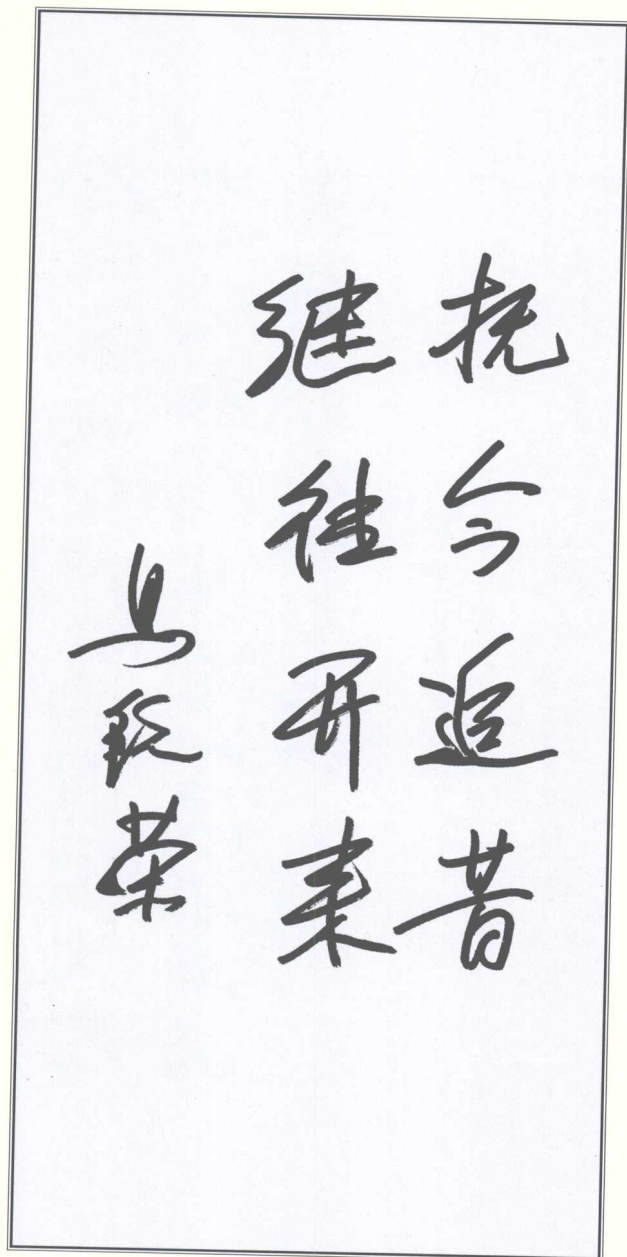 抚今追昔
继往开来
马锐荣